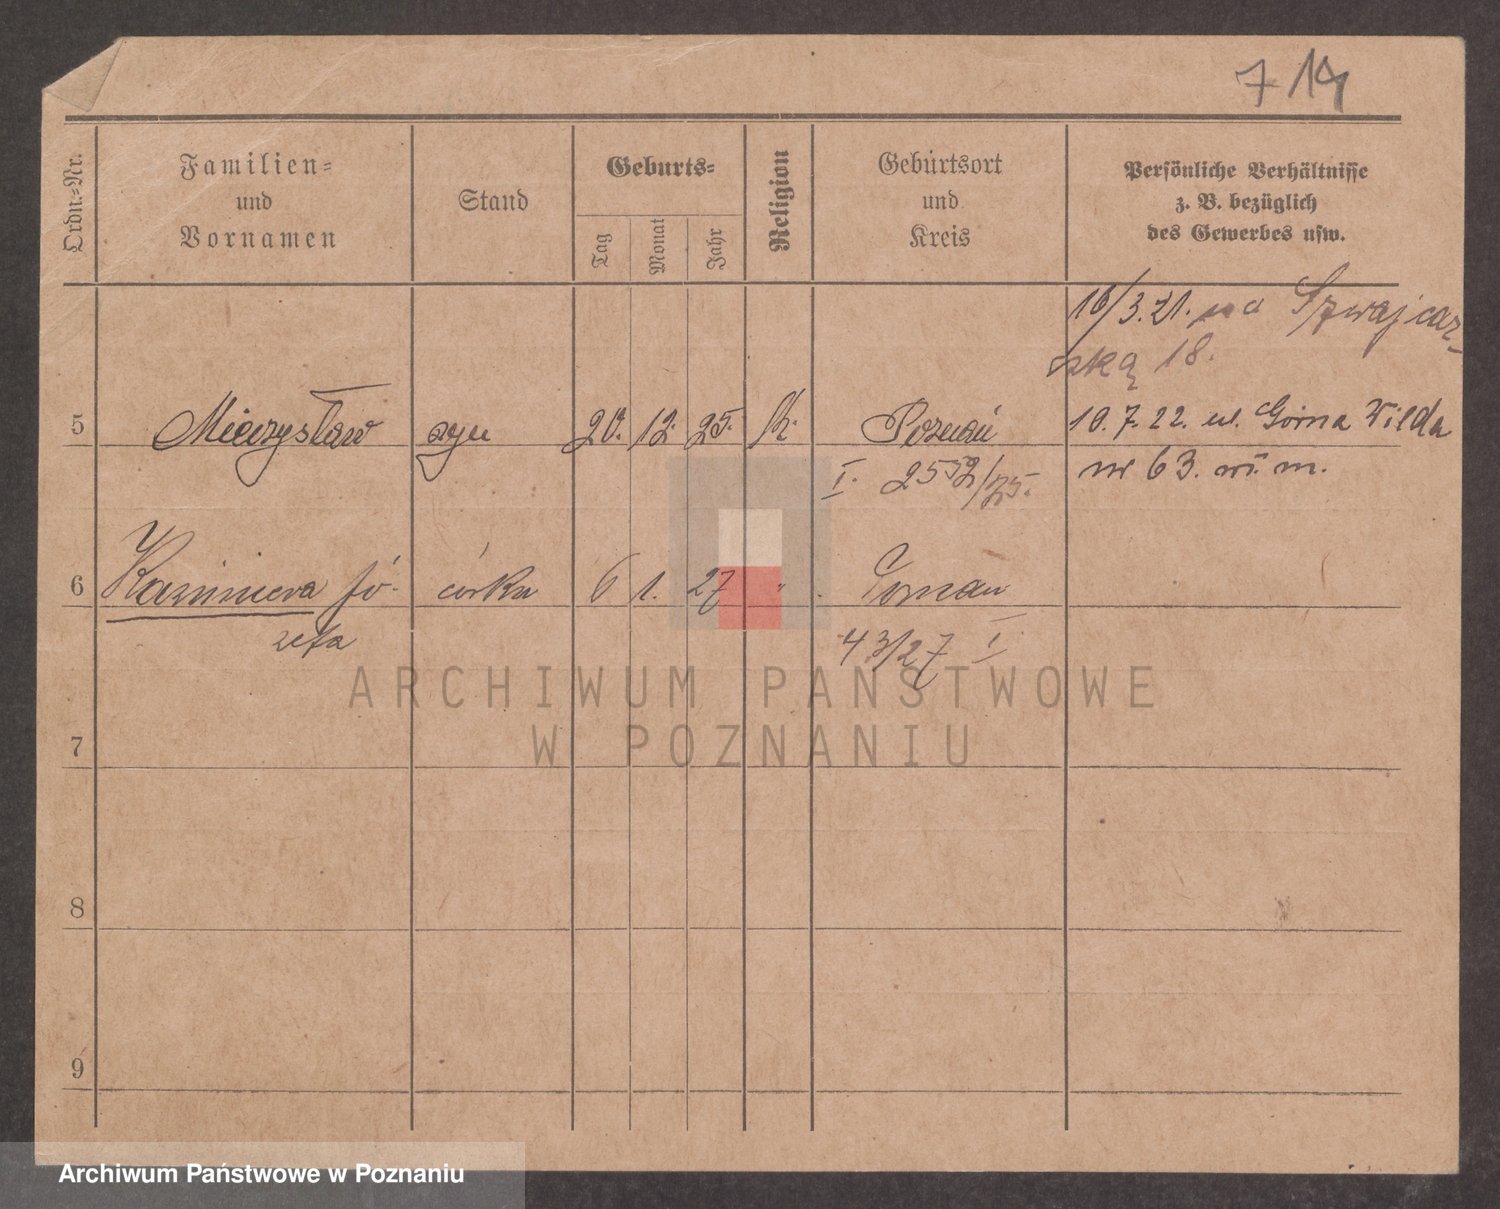 7 14
Ordn.-Nr.
Familien-
und
Vornamen
Stand
Geburts-
Tag
Monat
Jahr
Religion
Geburtsort
und
Kreis
Persönliche Verhältnisse
z. B. bezüglich
des Gewerbes usw.
16/3.21. na Szwajcar-
ską 18.
5 Mieczysław syn 20. 12. 25. k. Poznań 10.7.22. ul. Górna Wilda
I. 2552/25. nr 63. m.
6 Kazimiera Jó- córka 6 1. 27 " Poznań
zefa
43/27 I
7
8
9
ARCHIWUM PAŃSTWOWE
W POZNANIU
Archiwum Państwowe w Poznaniu